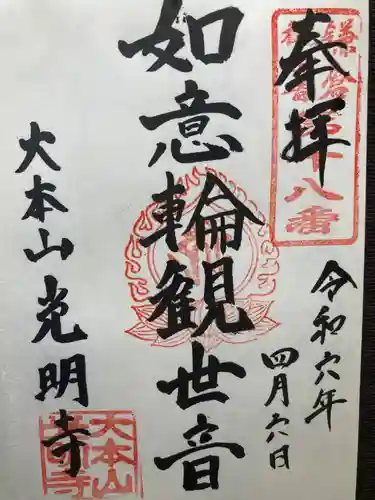 奉拝
鎌倉第十八番
令和六年
四月六日
如意輪観世音
大本山光明寺
大本山
光明寺